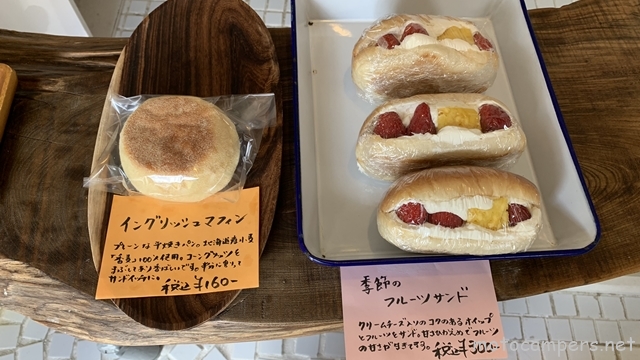 イングリッシュマフィン
プレーンな平焼きパン。北海道産小麦
「香麦」100%使用。コーングリッツを
まぶしており香ばしいです。半分に割って
サンドイッチに。
税込¥160-
季節の
フルーツサンド
クリームチーズ入りのコクのあるホイップ
とフルーツをサンド。甘さひかえめでフルーツ
の甘さが生きてます。税込¥300
campers.net